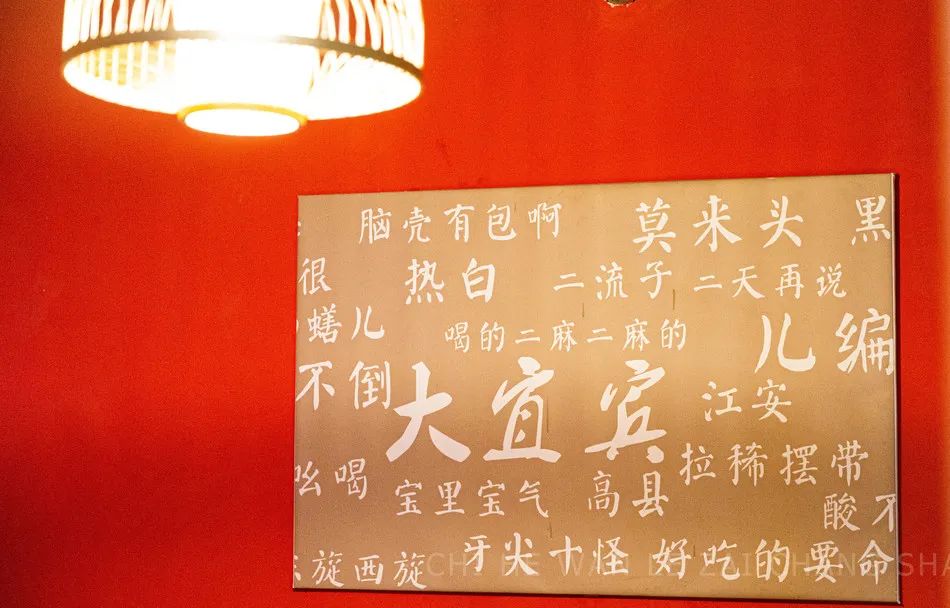 脑壳有包啊 莫来头 黑
很 热白 二流子 二天再说
蟮儿 喝的二麻二麻的 儿编
不倒 大宜宾 江安
吆喝 宝里宝气 高县 拉稀摆带
酸不
旋西旋 牙尖十怪 好吃的要命